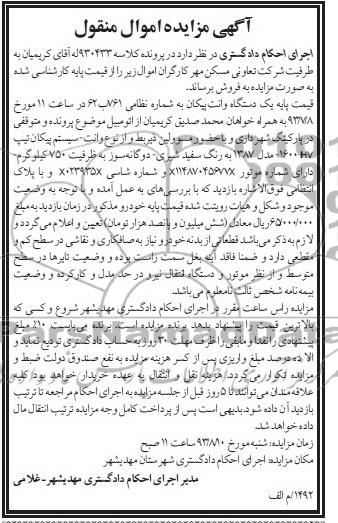 آگهی مزایده اموال منقول
اجرای احکام دادگستری در نظر دارد در پرونده کلاسه ۹۳۰۴۳۳له آقای کریمیان به
طرفیت شرکت تعاونی مسکن مهر کارگران اموال زیر را از قیمت پایه کارشناسی شده
به صورت مزایده به فروش برساند.
قیمت پایه یک دستگاه وانت پیکان به شماره نظامی ۷۶۱ب۶۲ در ساعت ۱۱ مورخ
۹۳/۷/۸ به همراه خواهان محمد صدیق کریمیان از اتومبیل موضوع پرونده و متوقفی
در پارکینگ شهرداری و با حضور مسولین ذیربط و از نوع وانت-سیستم پیکان تیپ
۱۶۰۰HV- مدل ۱۳۸۷ به رنگ سفید شیری- دوگانه سوز به ظرفیت ۷۵۰ کیلوگرم-
دارای شماره موتور x۱۱۴۸۷۰۴۵۶۷۷ و شماره شاسی x۰۲۳۹۳۵x و با پلاک
انتظامی فوق الاشاره بازدید که با بررسی های به عمل آمده و با توجه به وضعیت
موجود و شکل و هیات رویت شده قیمت پایه خودرو مذکور در زمان بازدید به مبلغ
۶۵/۰۰۰/۰۰۰ریال معادل (شش میلیون و پانصد هزار تومان) تعیین و اعلام می گردد و
لازم به ذکر می باشد قطعاتی از بدنه خودرو نیاز به صافکاری و نقاشی در سطح کم و
مقطعی دارد و ضمنا فاقد آینه بغل سمت راست بوده و وضعیت تایرها در سطح
متوسط و از نظر موتور و دستگاه انتقال نیرو در حد مدل و کارکرده و وضعیت
بیمه نامه شخص ثالث نامعلوم می باشد.
مزایده راس ساعت مقرر در اجرای احکام دادگستری مهدیشهر شروع و کسی که
بالاترین قیمت را پیشنهاد بدهد برنده مزایده است. برنده می بایست ۱۰٪ مبلغ
پیشنهادی را نقدا و مابقی را ظرف مهلت ۳۰ روز به حساب دادگستری تودیع نماید و
الا ده درصد مبلغ واریزی پس از کسر هزینه مزایده به نفع صندوق دولت ضبط و
مزایده تکرار می گردد. هزینه نقل و انتقال به عهده خریدار خواهد بود کلیه
علاقه مندان می توانند تا ۵ روز قبل از جلسه مزایده به اجرای احکام مراجعه تا ترتیب
بازدید آن داده شود. بدیهی است پس از پرداخت کامل وجه مزایده ترتیب انتقال مال
داده خواهد شد.
زمان مزایده: شنبه مورخ ۹۳/۸/۱۰ ساعت ۱۱ صبح
مکان مزایده: اجرای احکام دادگستری شهرستان مهدیشهر
مدیر اجرای احکام دادگستری مهدیشهر-غلامی
۱۴۹۲/م الف